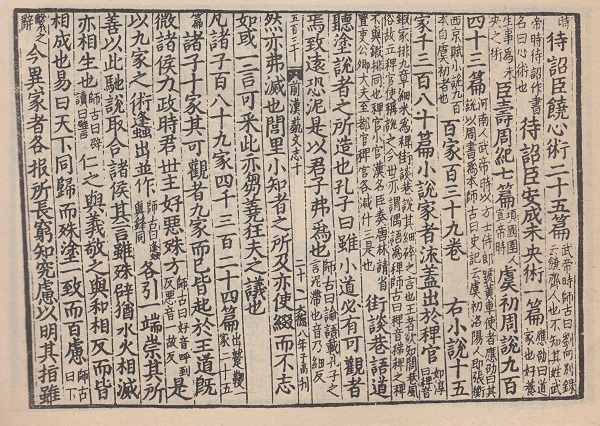 待詔臣饒心術二十五篇武帝時師古曰劉向別錄云饒齊人也不知其姓武
帝時待詔作書名曰心術也待詔臣安成未央術一篇應劭曰道家也好養
生事為未央之術臣壽周紀七篇項國圉人宣帝時虞初周說九百
四十三篇河南人武帝時以方士侍郎號黃車使者應劭曰其說以周書為本師古曰史記云虞初洛陽人即張衡
西京賦小說九百本自虞初者也百家百三十九卷右小說十五
家千三百八十篇小說家者流蓋出於稗官如淳曰稗音
鍛家排九章細米為稗街談巷說其細碎之言也王者欲知閭巷風俗故立稗官使稱說之今世亦謂偶語為稗師古曰稗音稊稗之稗
不與鍛排同也稗官小官漢名臣奏唐林請省置吏公卿大夫至都官稗官各減什三是也街談巷語道
聽塗說者之所造也孔子曰雖小道必有可觀者
焉致遠恐泥是以君子弗為也師古曰論語載孔子之言泥滯也音乃細反
五百三十 前漢藝文志十 二十 大德八年子高刊
然亦弗滅也閭里小知者之所及亦使綴而不忘
如或一言可采此亦芻蕘狂夫之議也
凡諸子百八十九家四千三百二十四篇出蹵鞠一家二十五篇
諸子十家其可觀者九家而已皆起於王道既
微諸侯力政時君世主好惡殊方師古曰好音呼到反惡音一故反是
以九家之術蠭出並作師古曰蠭與鋒同各引一端崇其所
善以此馳說取合諸侯其言雖殊辟猶水火相滅
亦相生也師古曰辟讀曰譬仁之與義敬之與和相反而皆
相成也易曰天下同歸而殊塗一致而百慮師古曰下繫之辭
今異家者各推所長窮知究慮以明其指雖